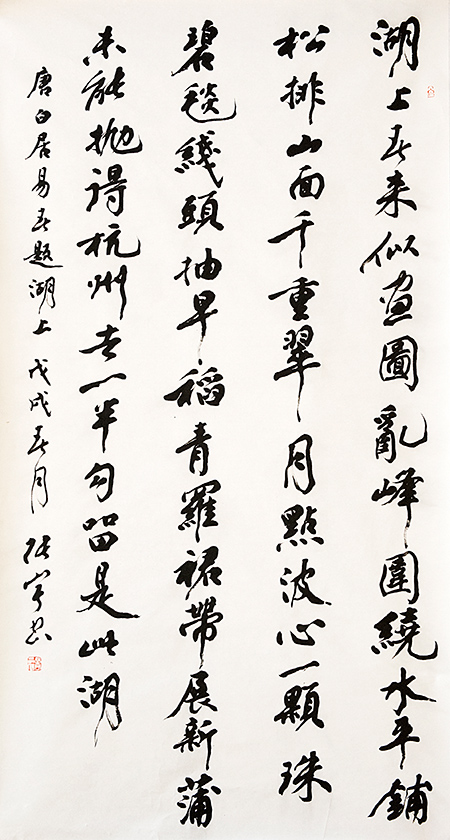 湖上春来似畫圖亂峰圍繞水平鋪
松排山面千重翠月點波心一顆珠
碧毯綫頭抽早稻青羅裙帶展新蒲
未能拋得杭州去一半勾留是此湖
唐白居易春題湖上 戊戌春月 书